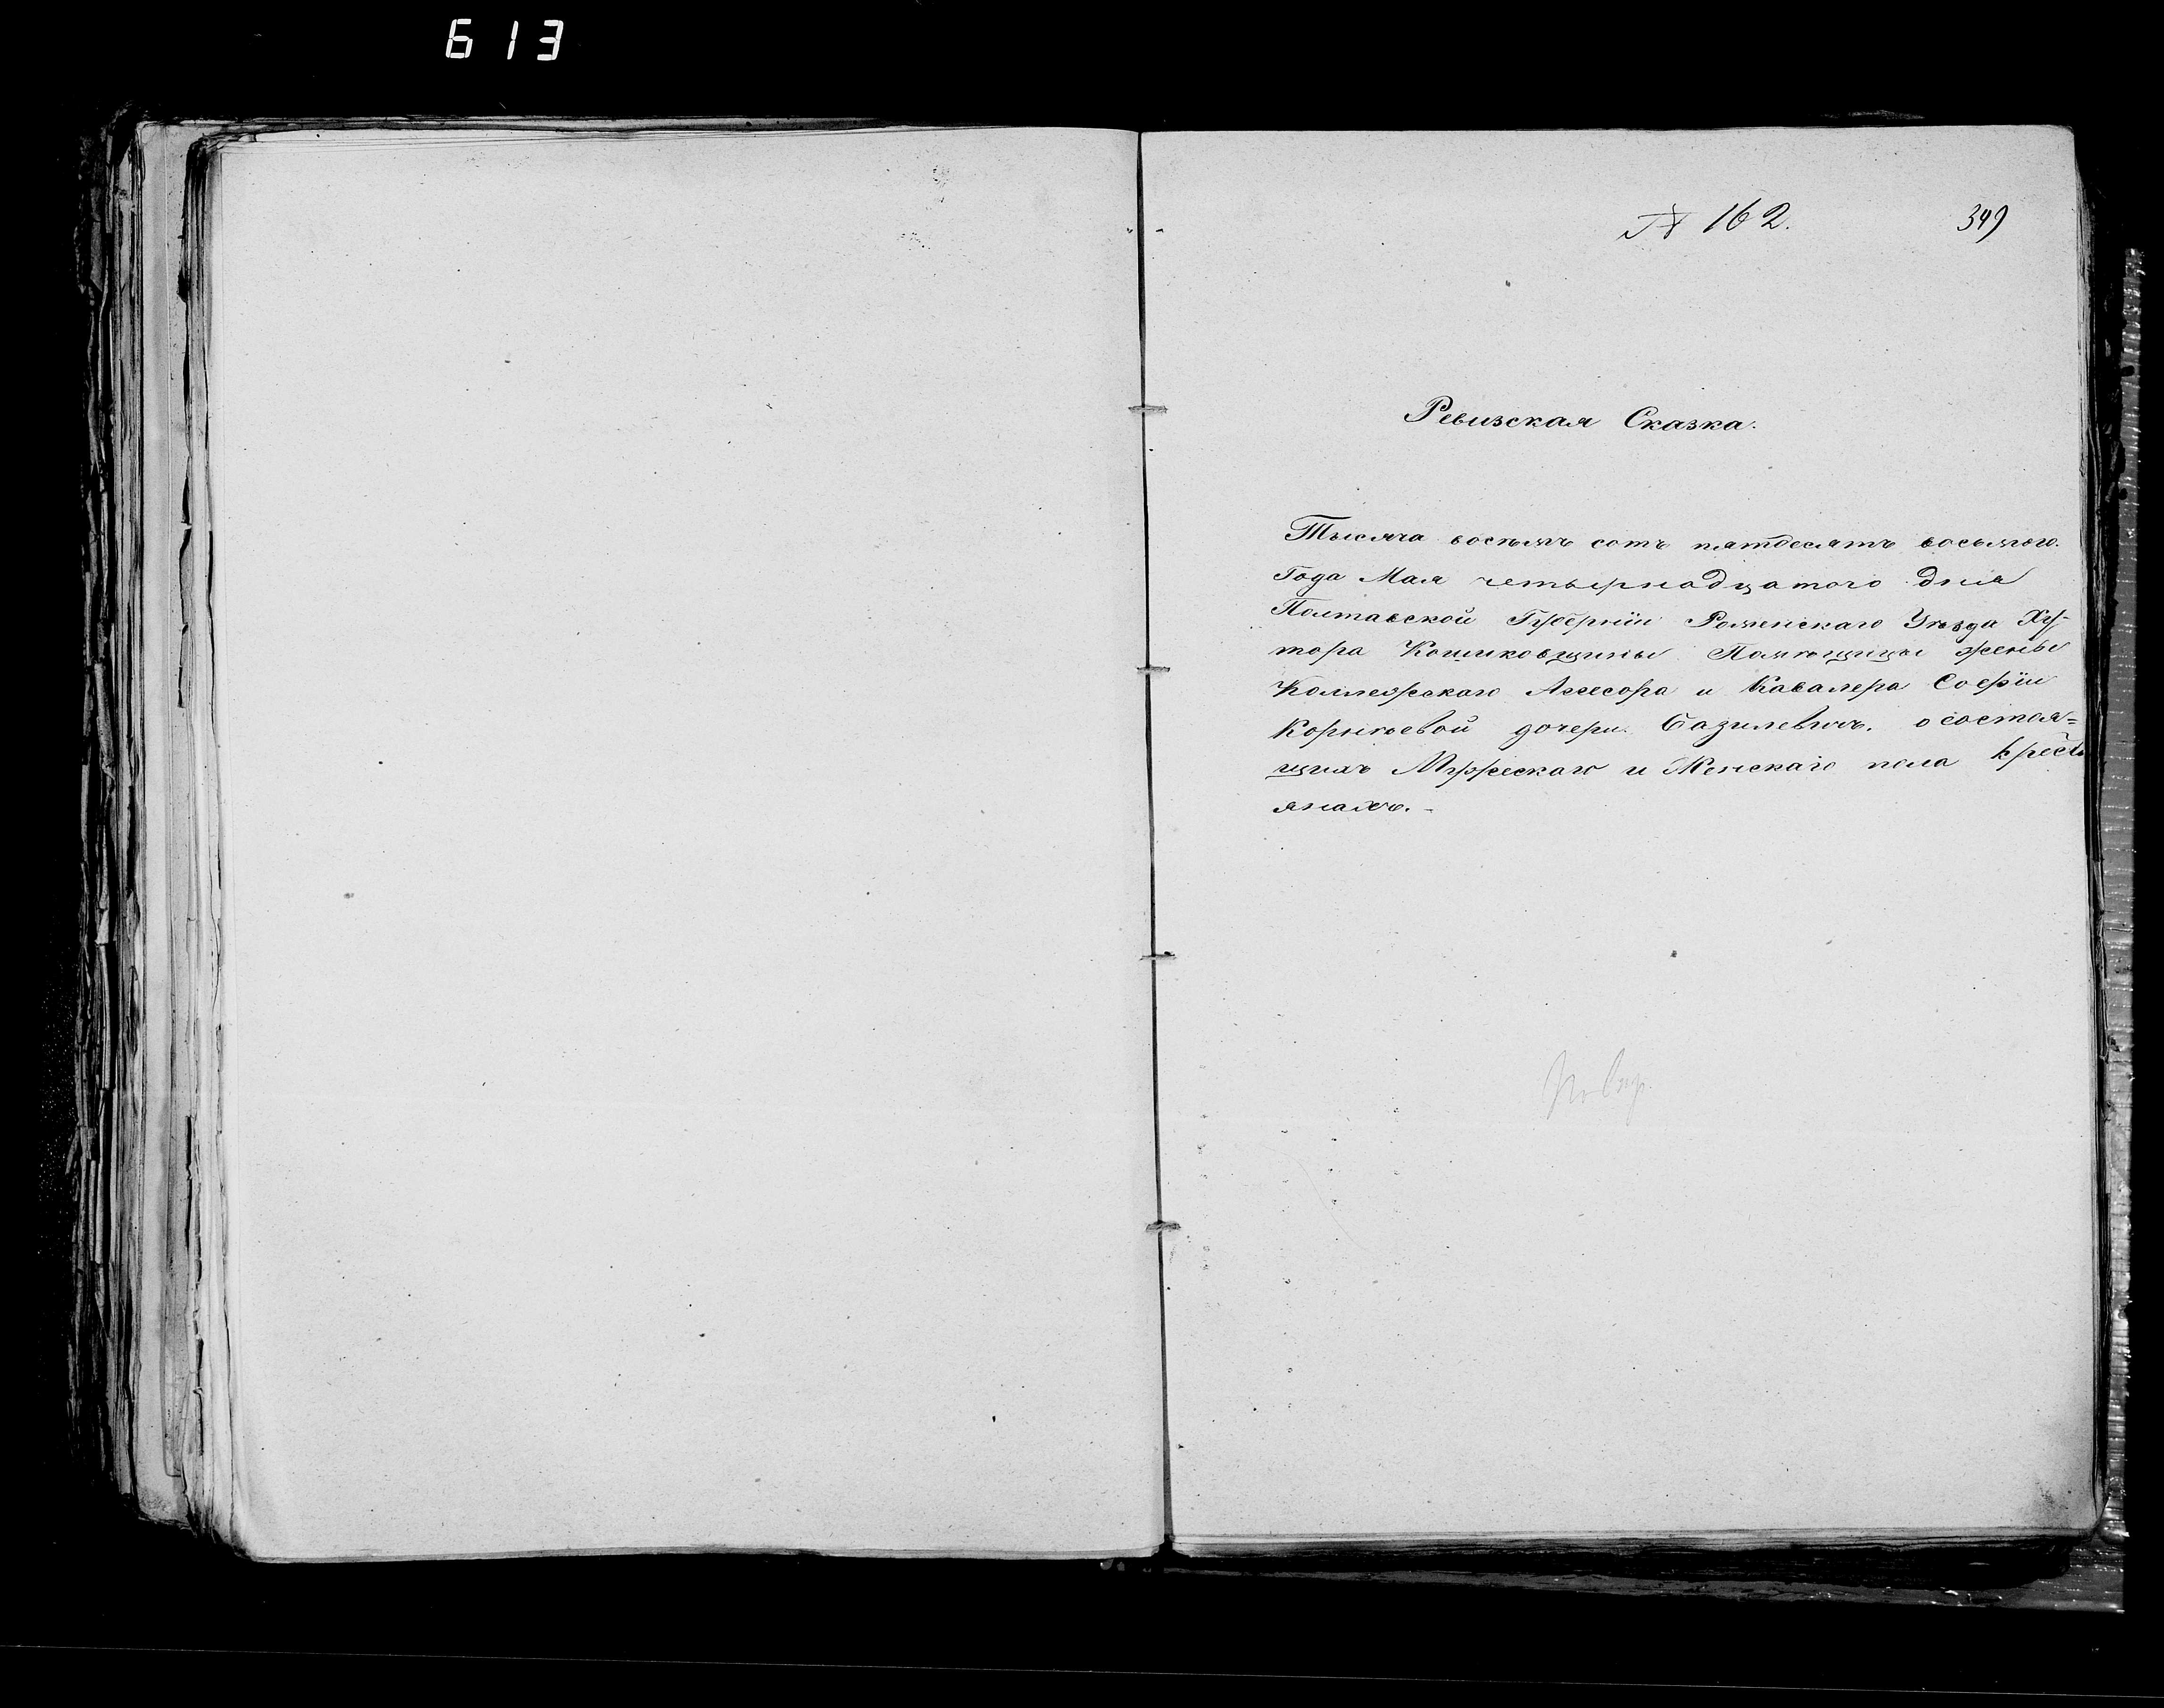 613
№ 162.
349
Ревизская Сказка.
Тысяча восемь сотъ пятдесятъ восьмого
Года Мая четырнадцатого дня
Полтавской Губерніи Роменскаго Уѣзда Ху-
тора Кошиковщины Помѣщицы жены
Коллежскаго Ассесора и Кавалера Софіи
Корнѣевой дочери Базилевичъ. о состоя=
щихъ Мужескаго и Женскаго пола кресть
янахъ.-